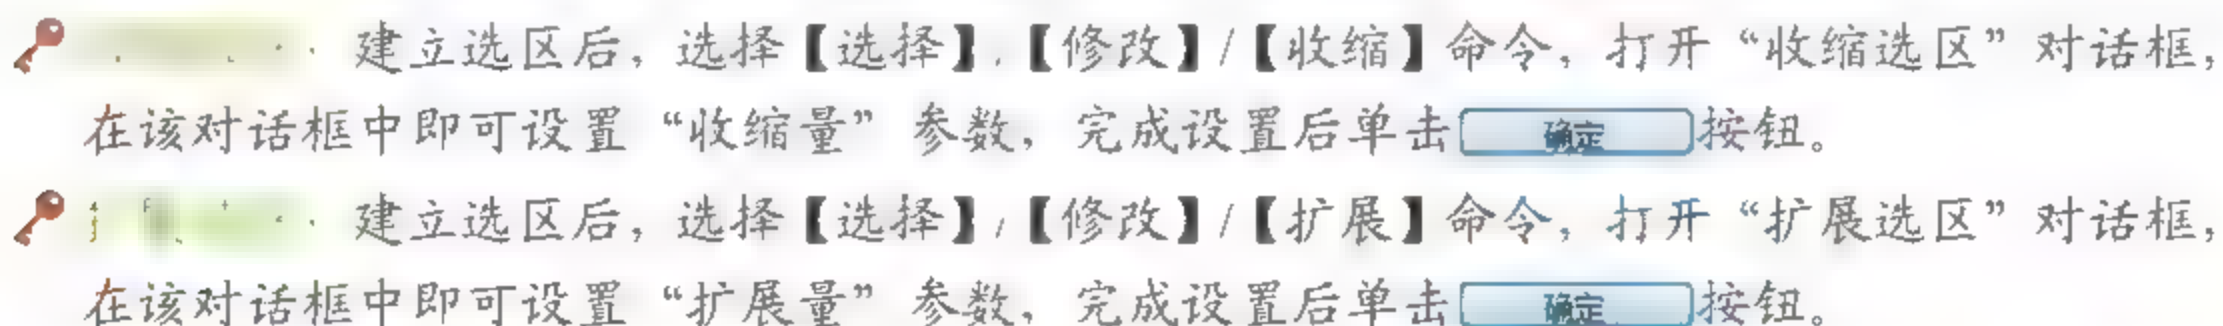 建立选区后，选择【选择】/【修改】/【收缩】命令，打开“收缩选区”对话框，
在该对话框中即可设置“收缩量”参数，完成设置后单击 确定 按钮。
建立选区后，选择【选择】/【修改】/【扩展】命令，打开“扩展选区”对话框，
在该对话框中即可设置“扩展量”参数，完成设置后单击 确定 按钮。